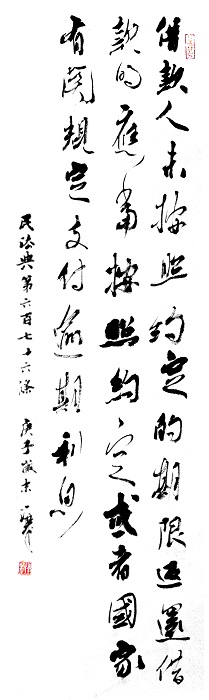 借款人未按照约定的期限返還借
款的應當按照約定或者國家
有関規定支付逾期利息
民法典第六百七十六條 庚子歲末